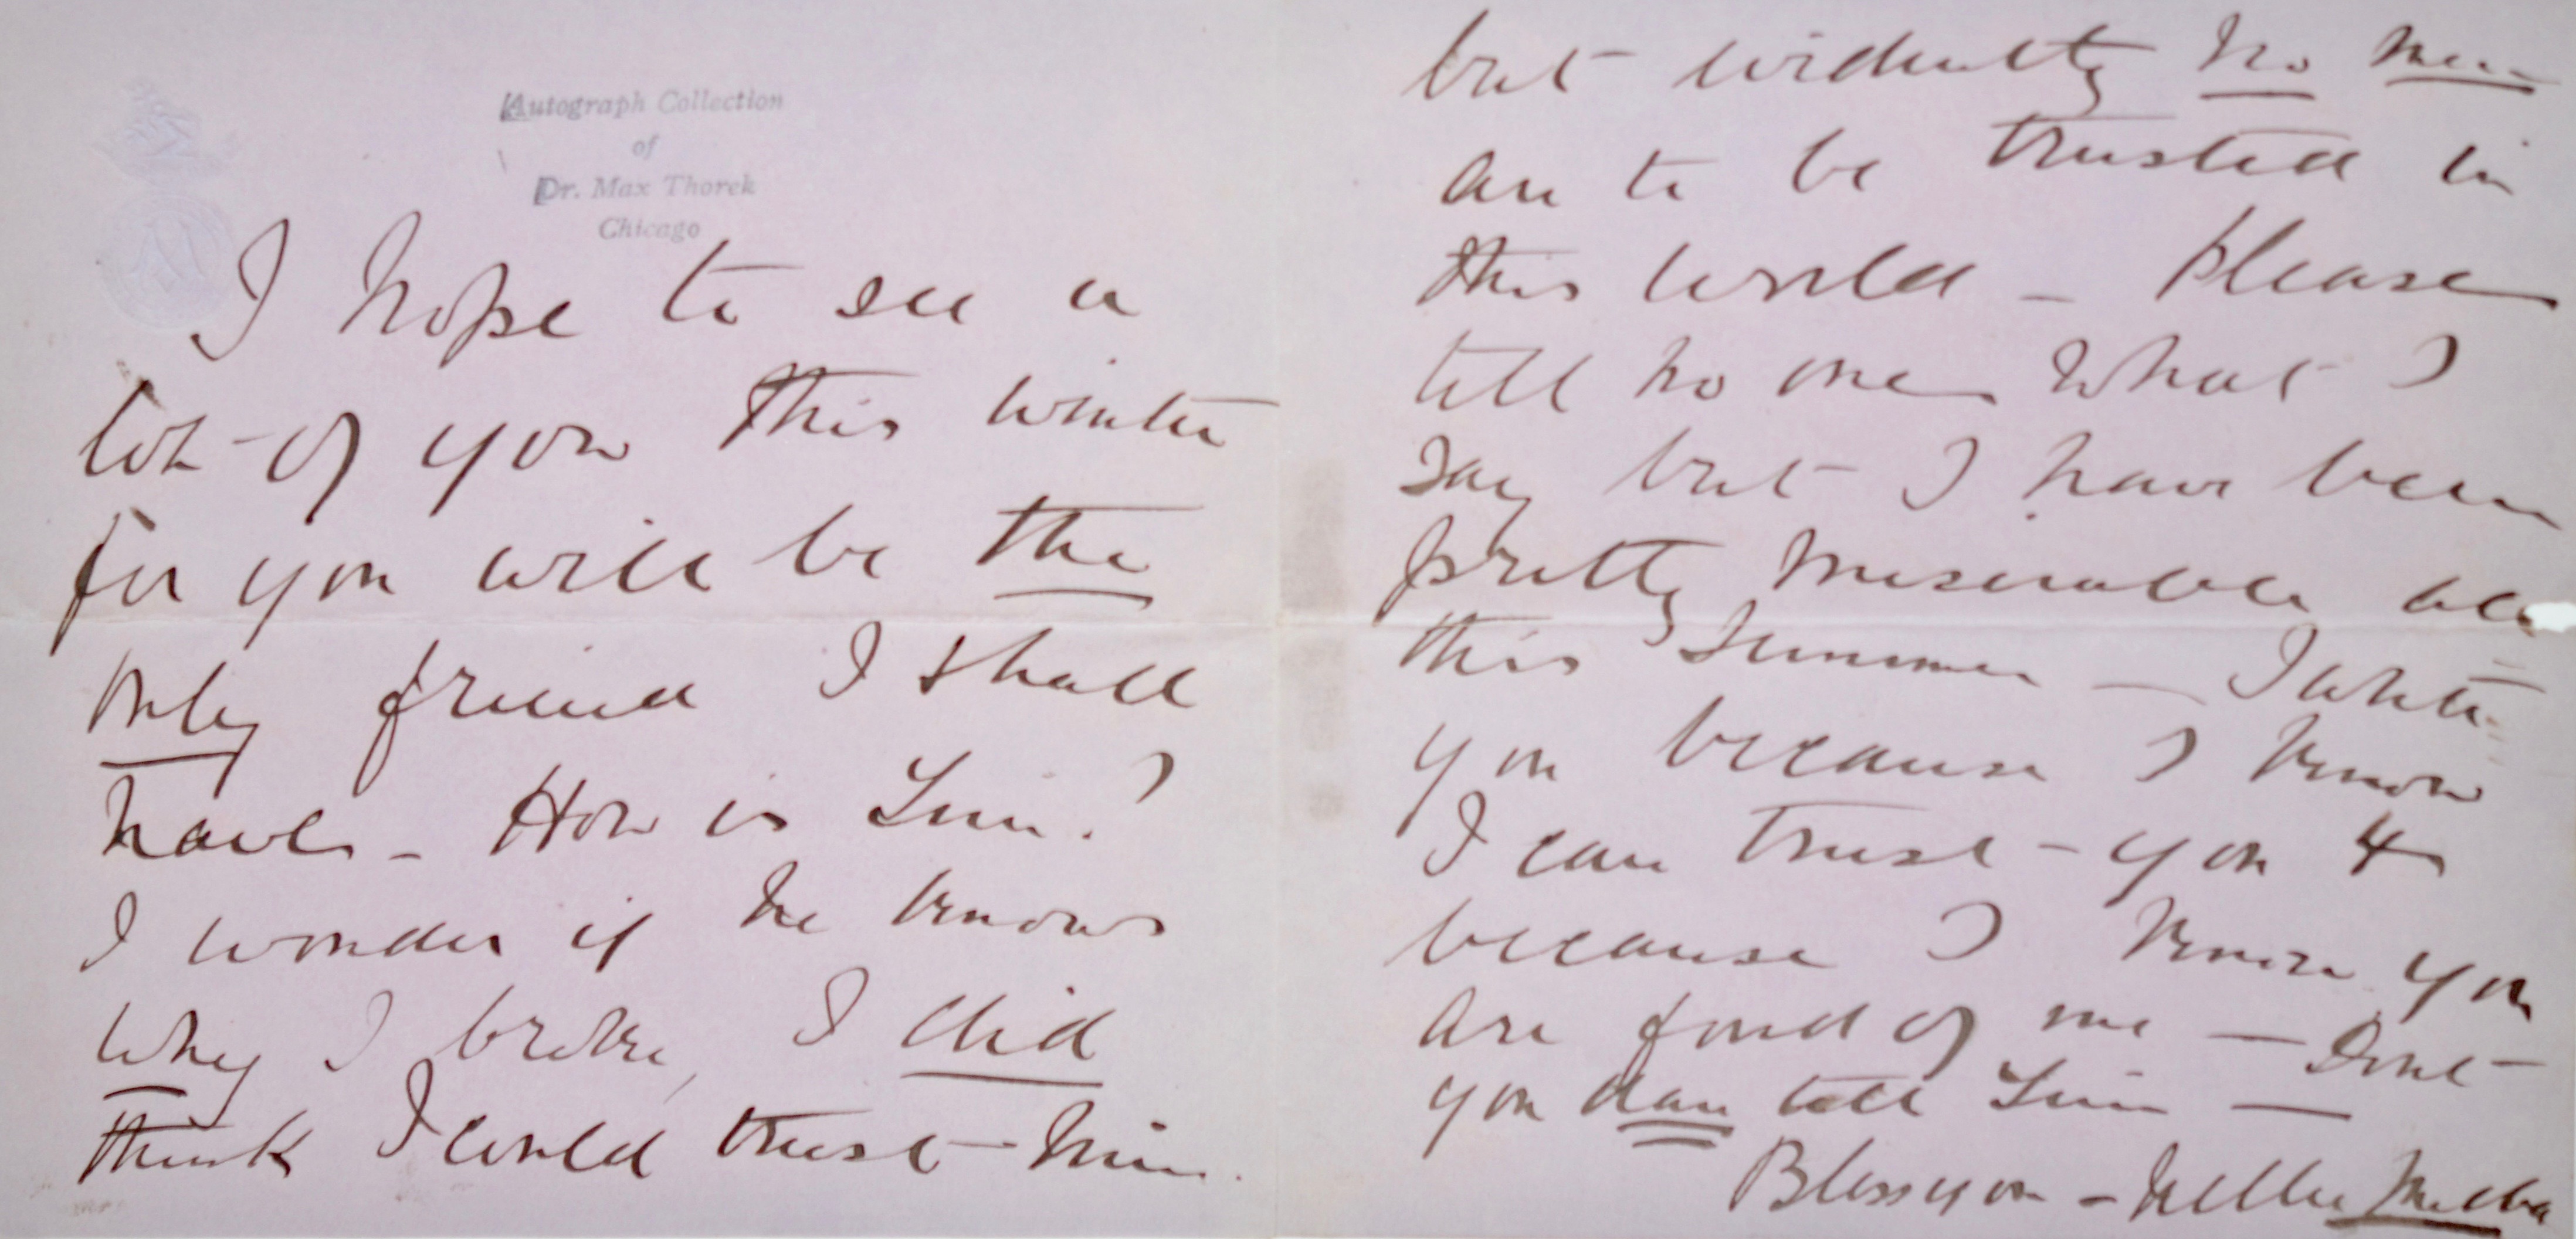 Autograph Collection
of
Dr. Max Thorek
Chicago
I hope to see a
lot of you this winter
for you will be the
only friend I shall
have - How is Tim?
I wonder if he knows
why I broke, I did
think I could trust him.
but evidently no men
are to be trusted in
this world - Please
tell no one what I
say but I have been
pretty miserable all
this summer - I write
you because I know
I can trust you &
because I know you
are fond of me - Dont
you dare tell Tim -
Bless you - Nellie Melba